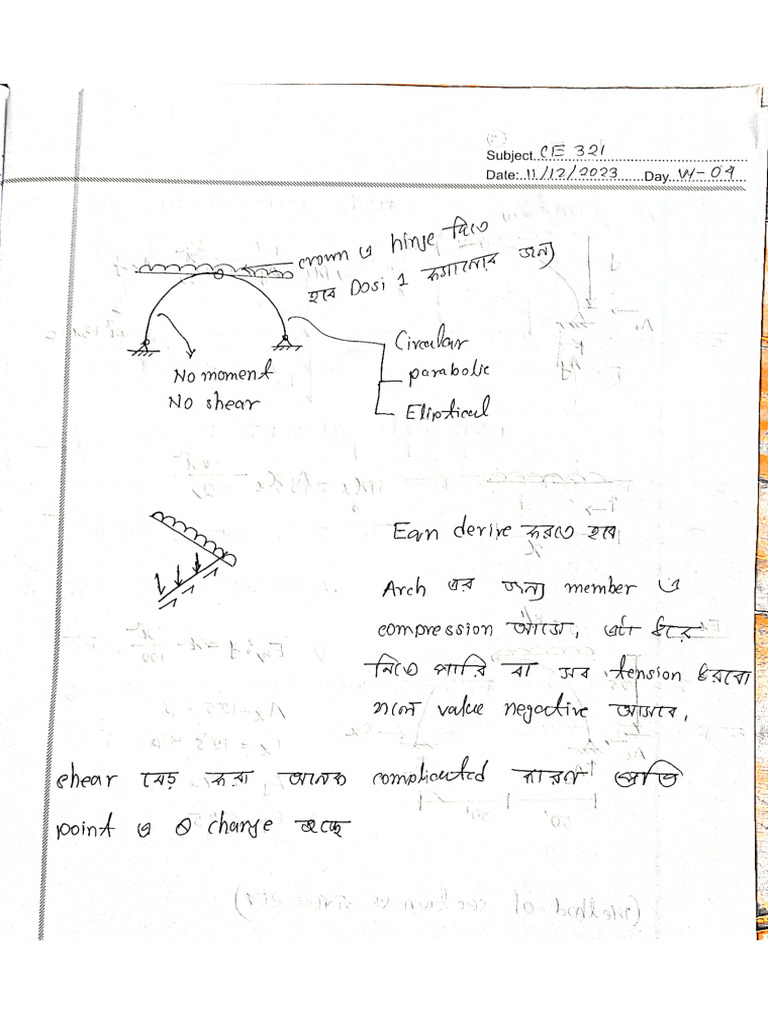 Subject. CE 321
Date: 11/12/2023 Day. W-04
crown এ hinge দিতে
হবে DOSI 1 কমানোর জন্য
No moment
No shear
Circular
parabolic
Eliptical
Eqn derive করতে হবে
Arch এর জন্য member এ
compression আসে, এটা ধরে
নিতে পারি বা সব tension ধরবো
তাহলে value negative আসবে,
shear বের করা অনেক complicated কারণ প্রতি
point এ θ change হচ্ছে